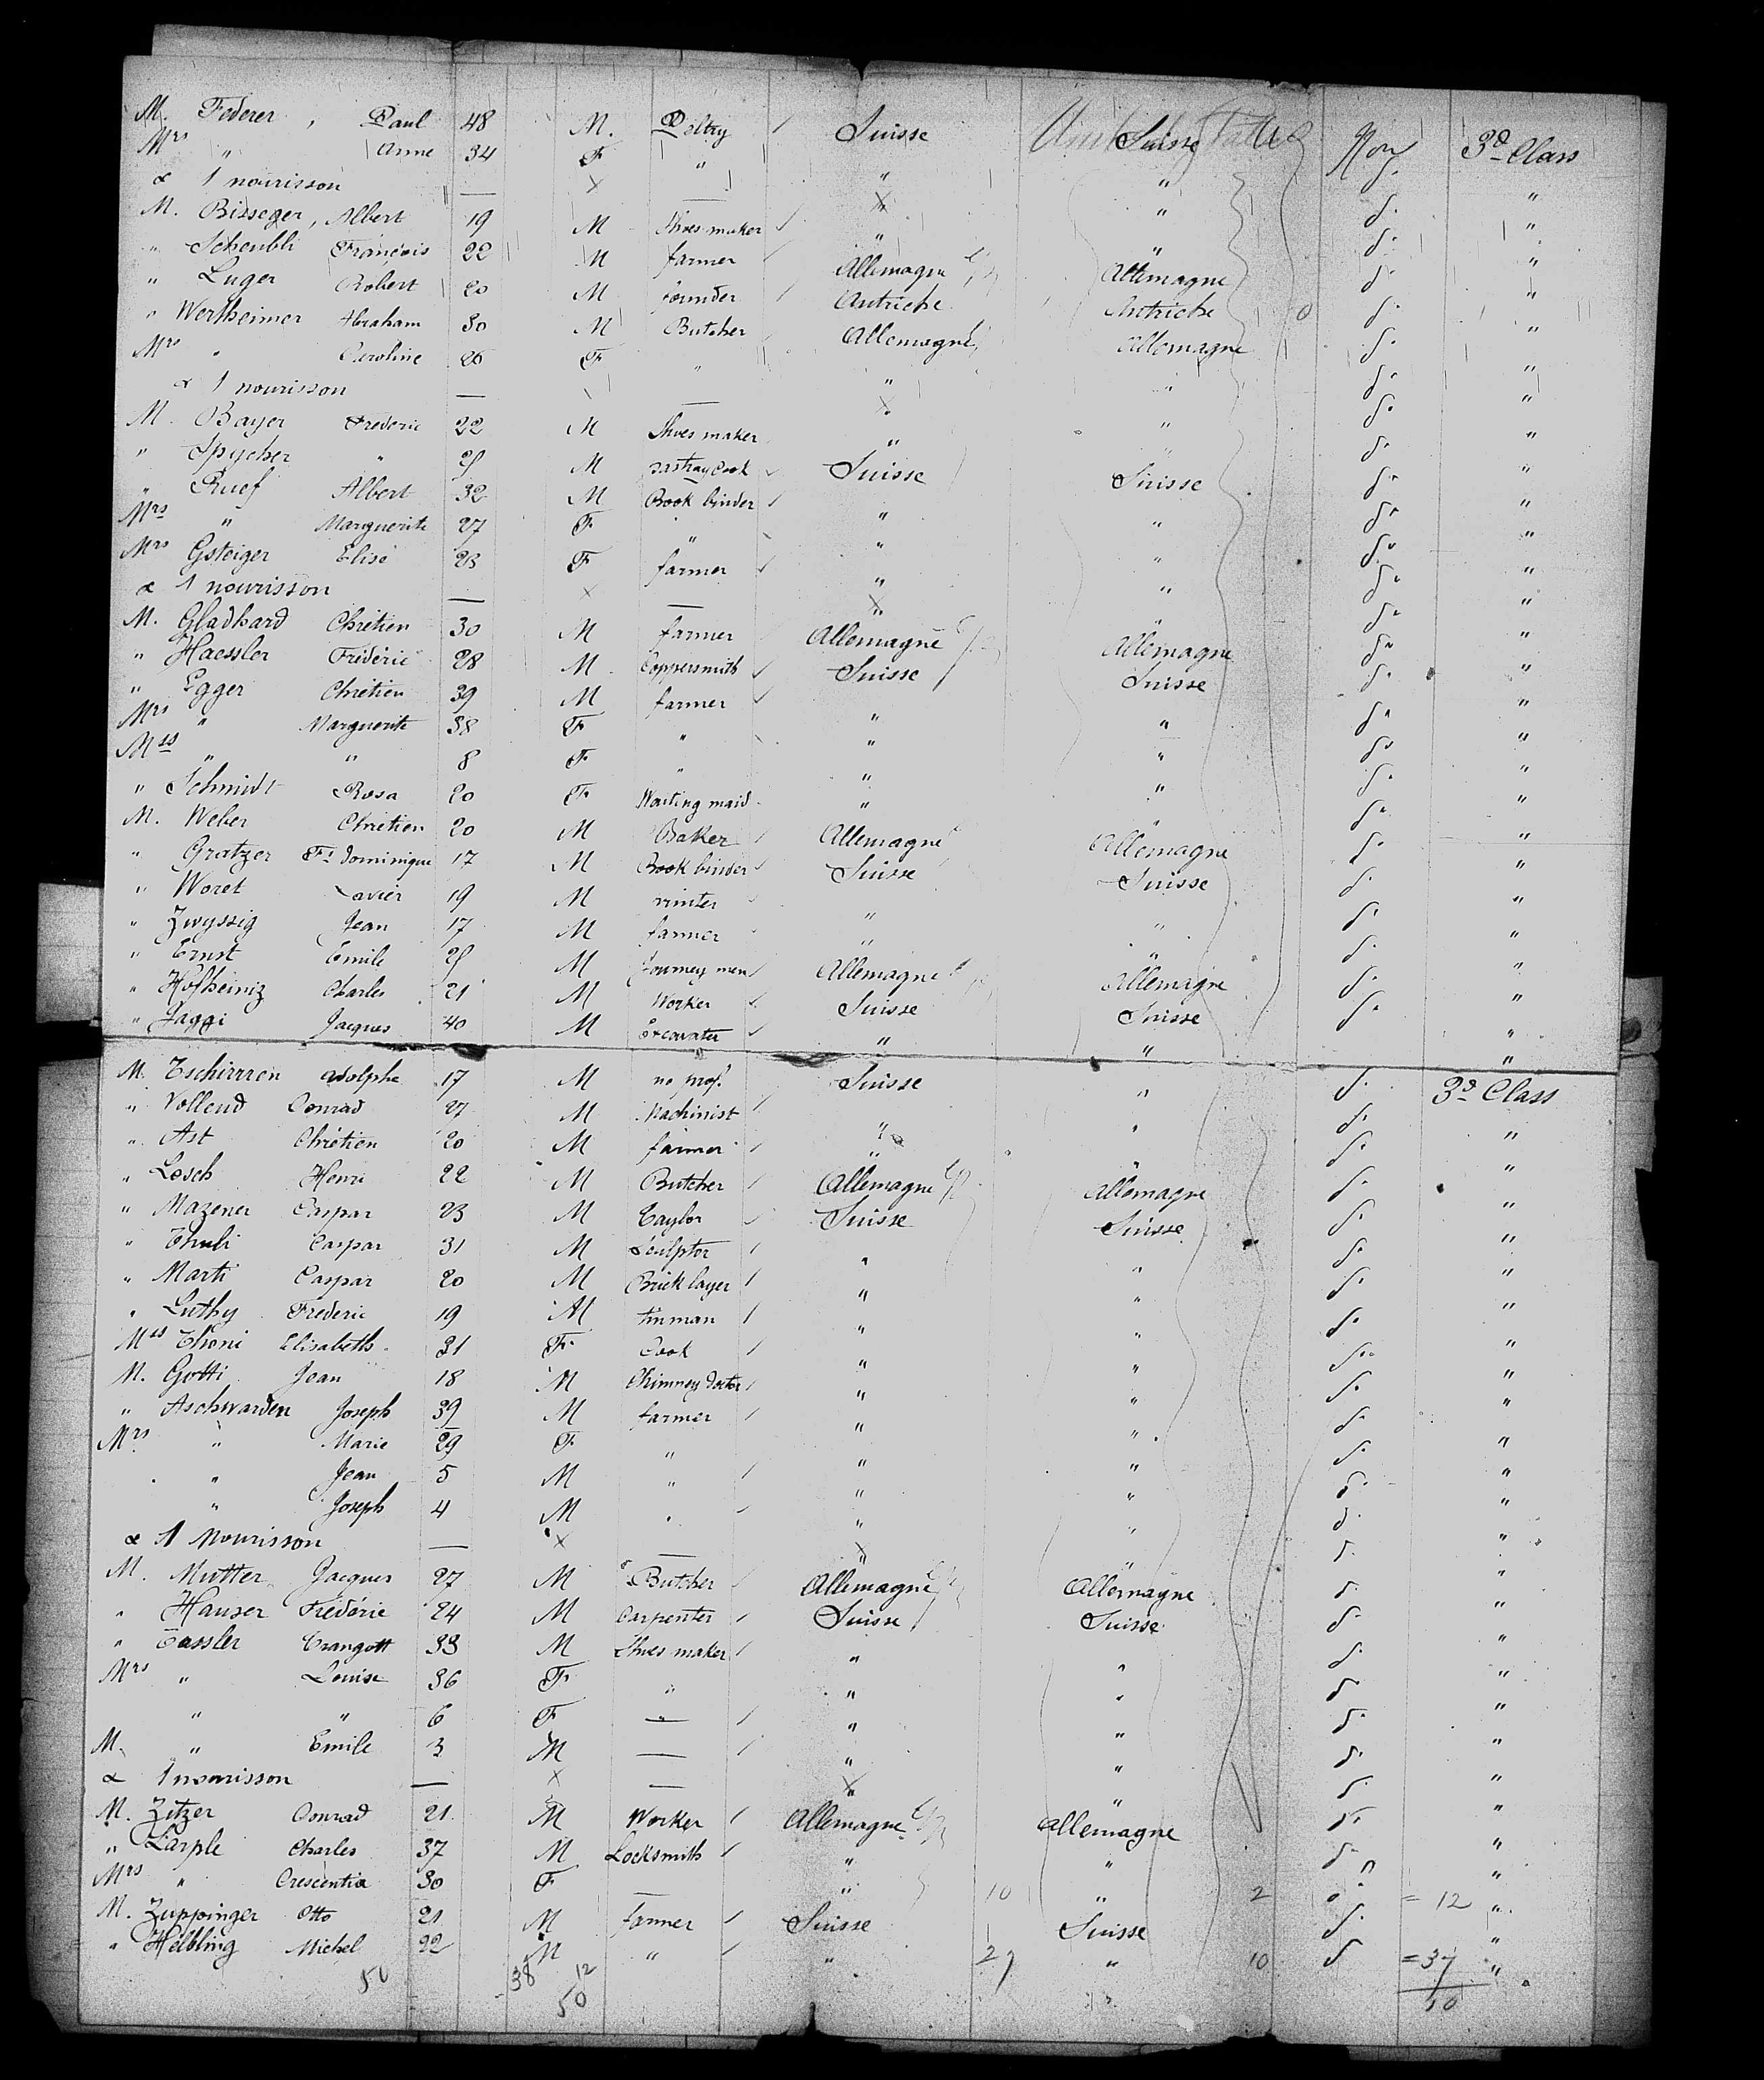 M. Federer, Paul 48 M. Peltry Suisse Suisse Non 3d Class
Mrs " Anne 34 F " " " d° "
& 1 nourisson — × — × " d° "
M. Bisseger, Albert 19 M Shoes maker " " d° "
" Scheubli François 22 M farmer Allemagne Allemagne d° "
" Luger Robert 20 M founder Autriche Autriche d° "
" Wertheimer Abraham 30 M Butcher Allemagne Allemagne d° "
Mrs " Caroline 26 F " " " d° "
& 1 nourisson — — × " d° "
M. Bayer Frederic 22 M Shoes maker " " d° "
" Spycher " M Pastry Cook Suisse Suisse d° "
" Ruef Albert 32 M Book binder " " d° "
Mrs " Marguerite 27 F " " " d° "
Mrs Gsteiger Elise 23 F farmer " " d° "
& 1 nourisson — × — × " d° "
M. Gladhard Chrétien 30 M farmer Allemagne Allemagne d° "
" Haessler Frédéric 28 M Coppersmith Suisse Suisse d° "
" Egger Chrétien 39 M farmer " " d° "
Mrs " Marguerite 38 F " " " d° "
Mss " " 8 F " " " d° "
" Schmidt Rosa 20 F Waiting maid " " d° "
M. Weber Chrétien 20 M Baker Allemagne Allemagne d° "
" Gratzer Fs Dominique 17 M Book binder Suisse Suisse d° "
" Woret Xavier 19 M " " d° "
" Zwyssig Jean 17 M farmer " " d° "
" Ernst Emile M Journey men Allemagne Allemagne d° "
" Hofheiniz Charles 21 M Worker Suisse Suisse d° "
" Jaggi Jacques 40 M Excavater " " d° "
M. Tschirrren Adolphe 17 M no prof. Suisse " d° 3d Class
" Vollend Conrad 27 M Machinist " " d° "
" Ast Chrétien 20 M farmer " " d° "
" Lesch Henri 22 M Butcher Allemagne Allemagne d° "
" Mazener Caspar 23 M Taylor Suisse Suisse d° "
" Thuli Caspar 31 M Sculptor " " d° "
" Marti Caspar 20 M Brick layer " " d° "
" Luthy Frederic 19 M tinman " " d° "
Mss Thoni Elisabeth 31 F Cook " " d° "
M. Gotti Jean 18 M Chimney doctor " " d° "
" Aschwarden Joseph 39 M farmer " " d° "
Mrs " Marie 29 F " " " d° "
" " Jean 5 M " " " d° "
" Joseph 4 M " " " d° "
& 1 Nourisson — × — × " d° "
M. Mutter Jacques 27 M Butcher Allemagne Allemagne d° "
" Hauser Frédéric 24 M Carpenter Suisse Suisse d° "
" Tassler Trangott 33 M Shoes maker " " d° "
Mrs " Louise 36 F " " " d° "
" " 6 F — " " d° "
M. " Emile 3 M — " " d° "
& 1 nourisson — × — × " d° "
M. Zitzer Conrad 21 M Worker Allemagne Allemagne d° "
" Larple Charles 37 M Locksmith " " d° "
Mrs " Crescentia 30 F — " 10 " 2 d° = 12 "
M. Zuppinger Otto 21 M farmer Suisse Suisse d° "
" Helbling Michel 22 M " " 27 " 10 d° = 37 "
50 38 12 50
50